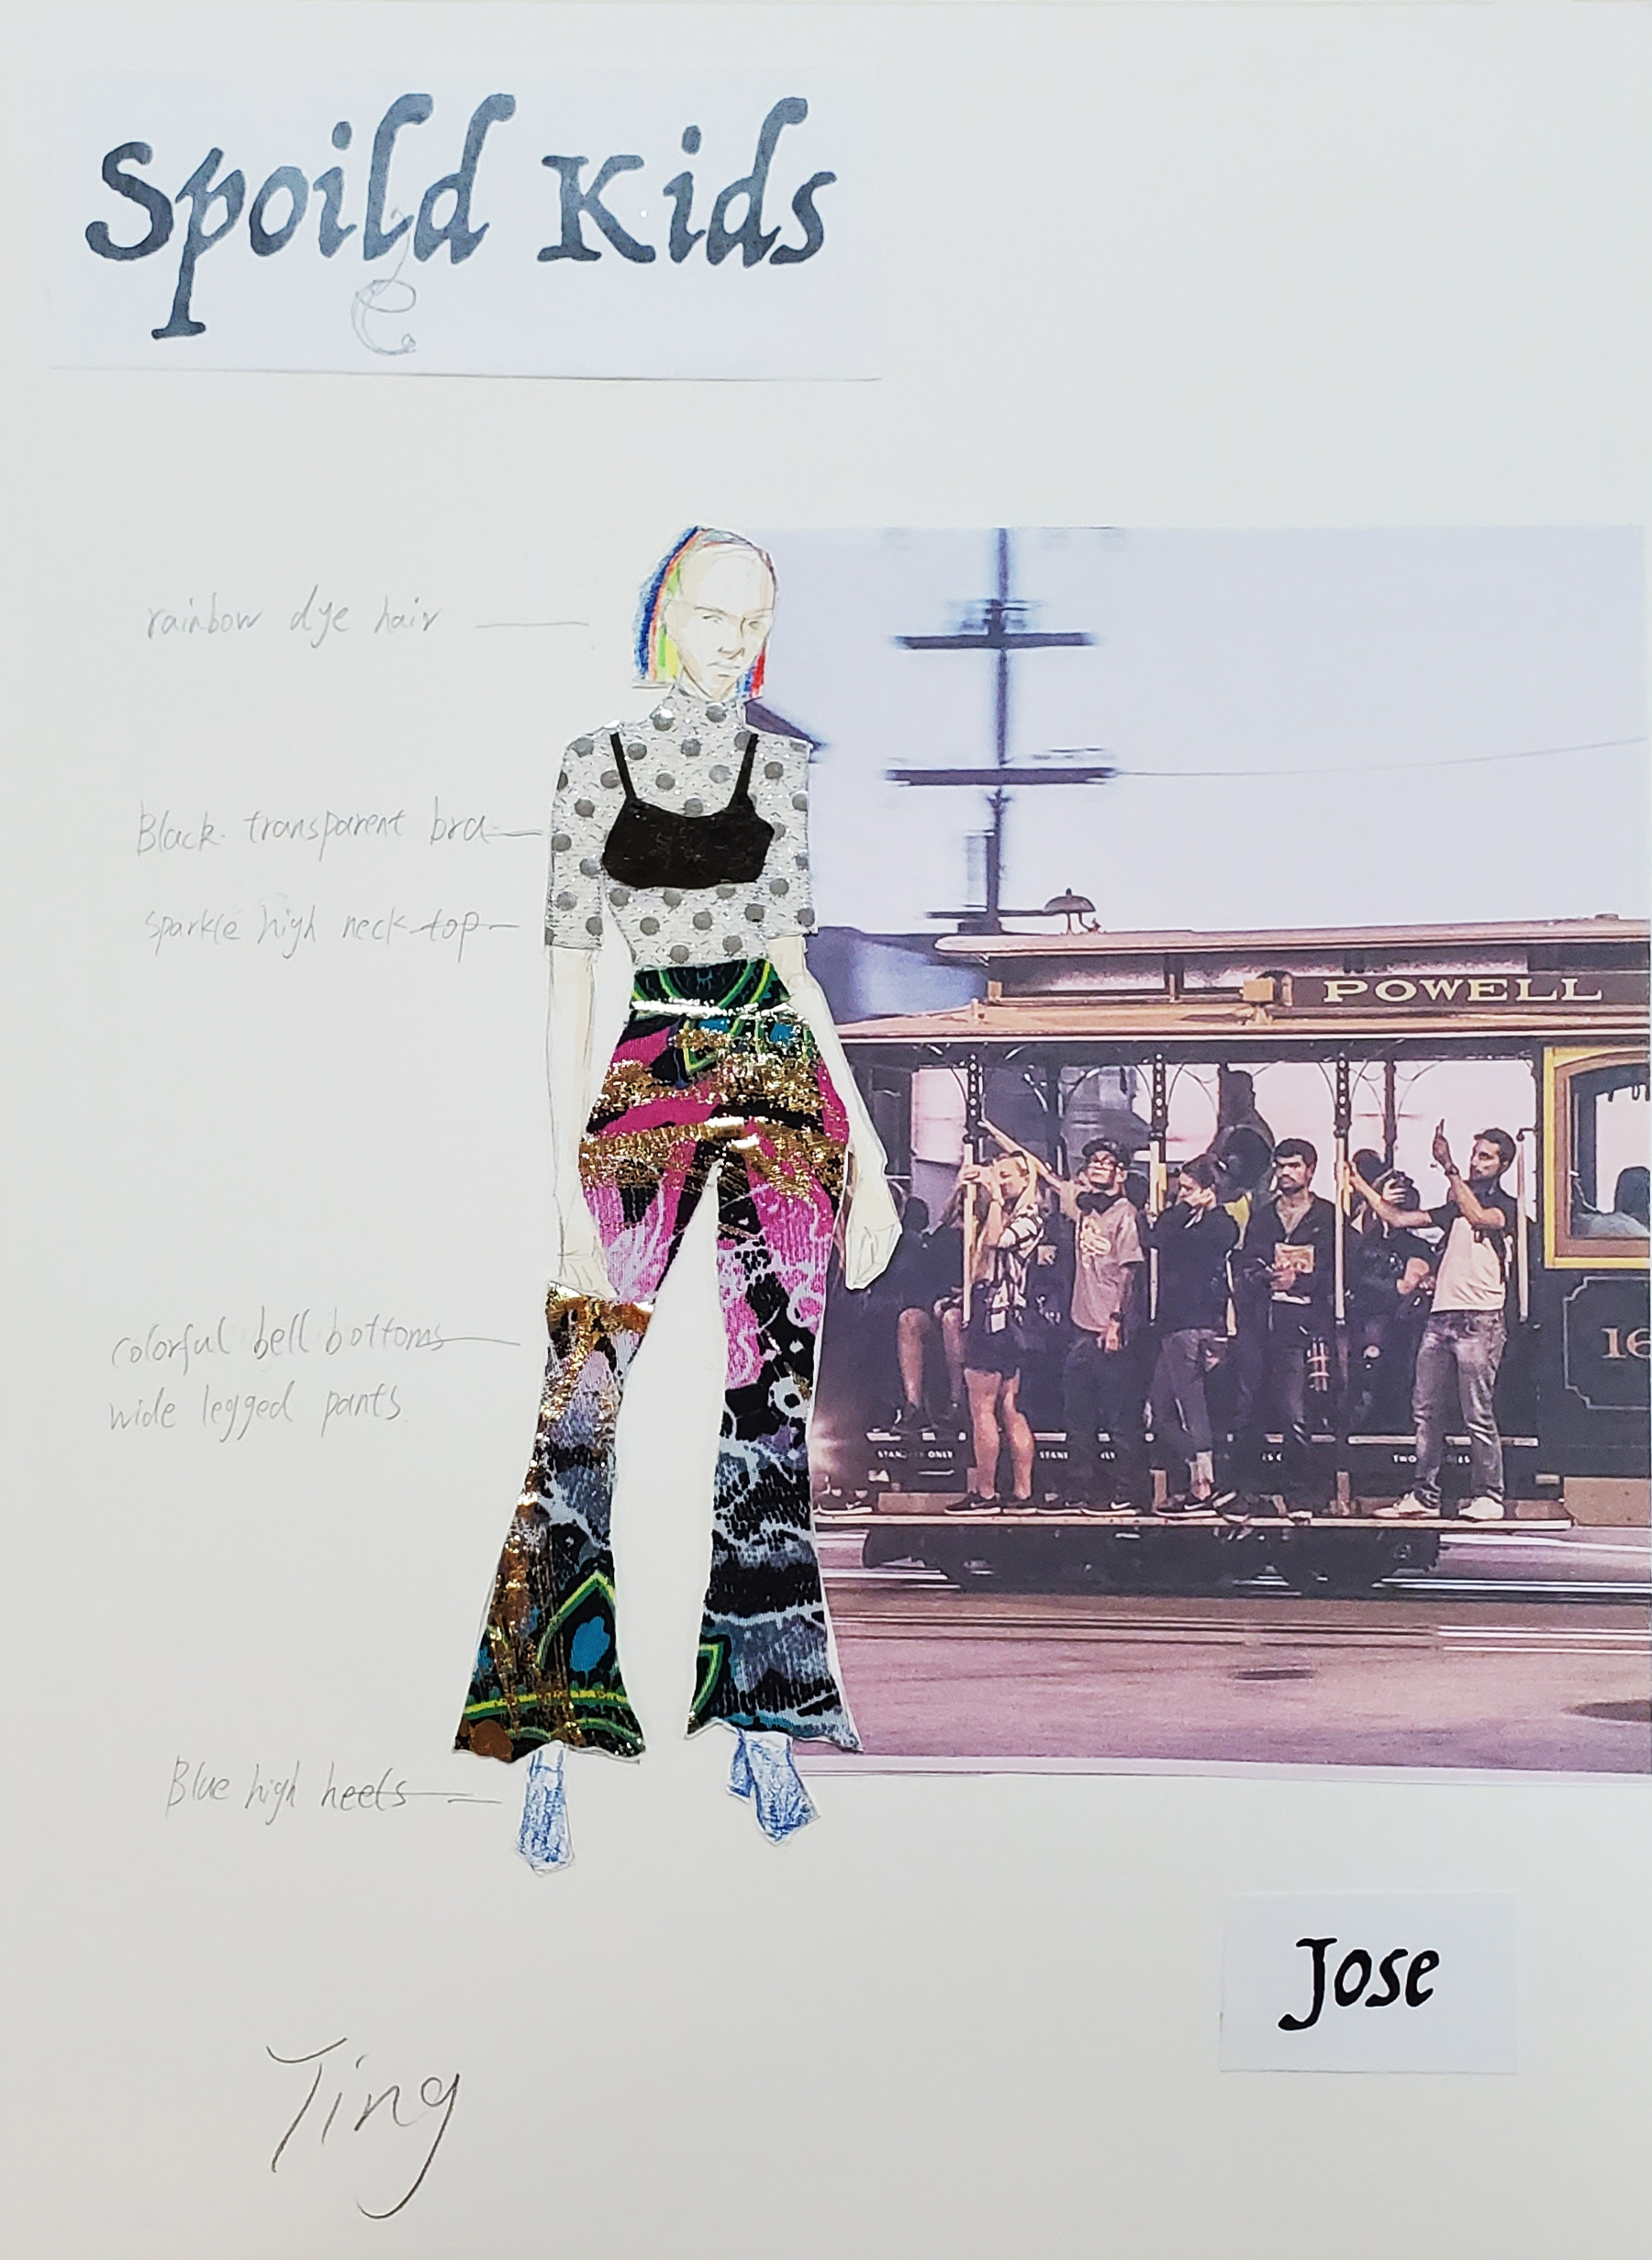 Spoild Kids
e
rainbow dye hair
Black transparent bra
sparkle high neck top
POWELL
colorful bell bottoms
wide legged pants
16
Blue high heels
Jose
Ting